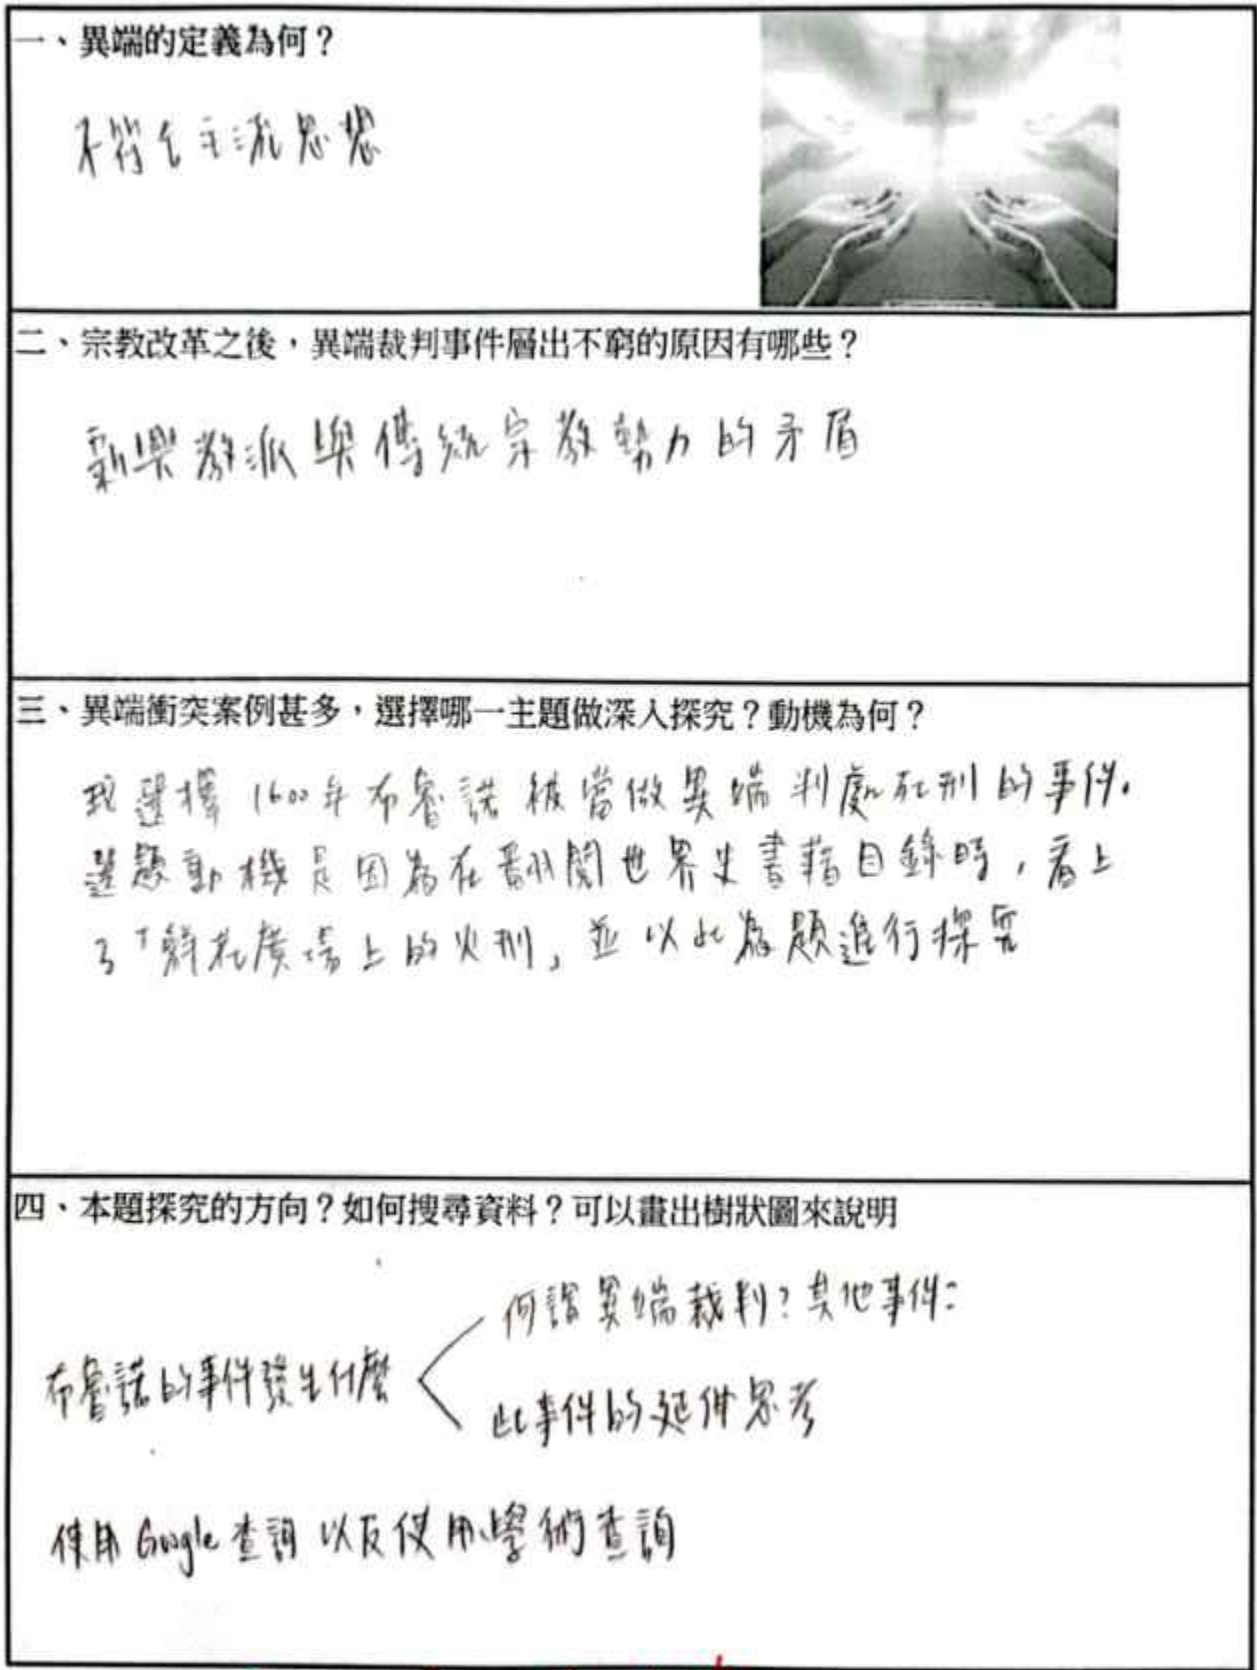 一、異端的定義為何？
不符合主流思想
二、宗教改革之後，異端裁判事件層出不窮的原因有哪些？
新興教派與傳統宗教勢力的矛盾
三、異端衝突案例甚多，選擇哪一主題做深入探究？動機為何？
我選擇1600年布魯諾被當做異端判處死刑的事件。
選題動機是因為在翻閱世界史書籍目錄時，看上
了「鮮花廣場上的火刑」，並以此為題進行探究
四、本題探究的方向？如何搜尋資料？可以畫出樹狀圖來說明
何謂異端裁判？其他事件？
布魯諾的事件發生什麼
此事件的延伸思考
使用Google查詢以及使用學術查詢